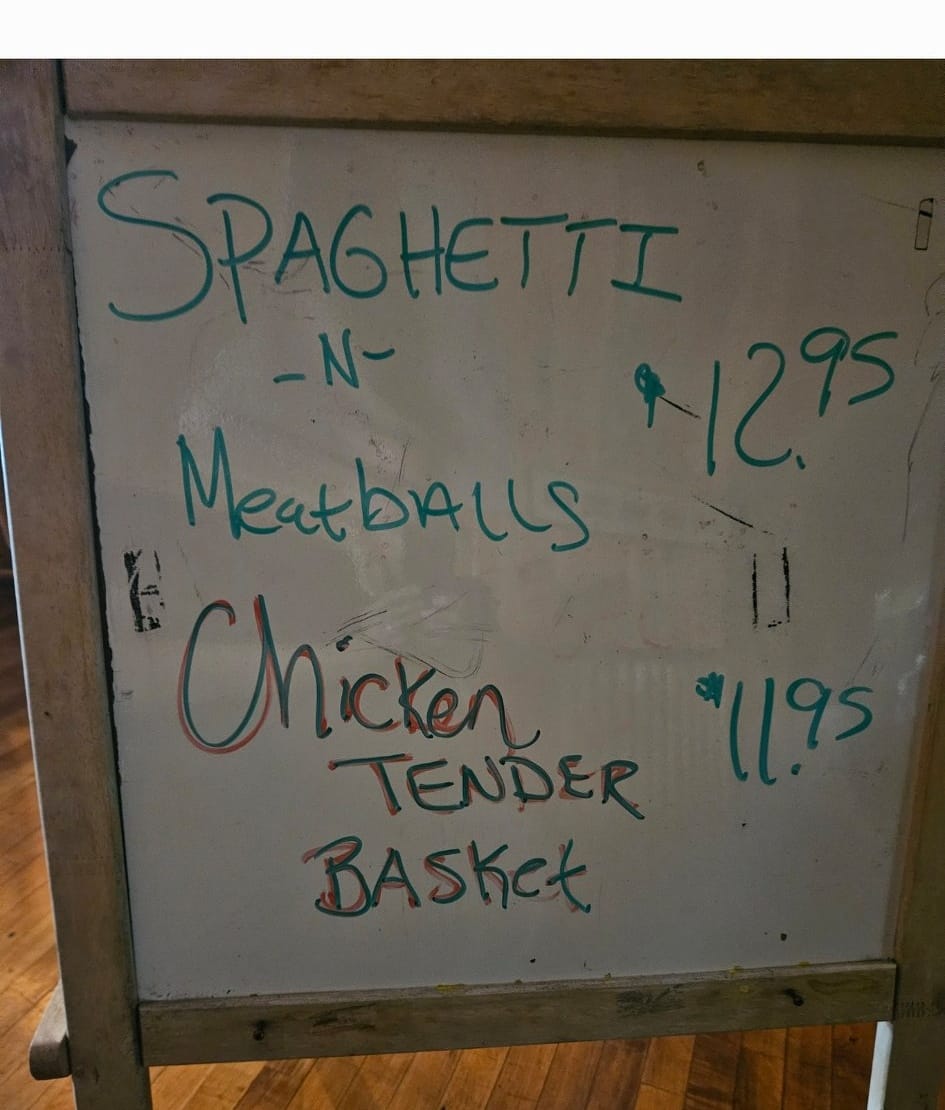 SPAGHETTI
-N-
$12.95
MeatbALLS
Chicken
$11.95
TENDER
BASKet